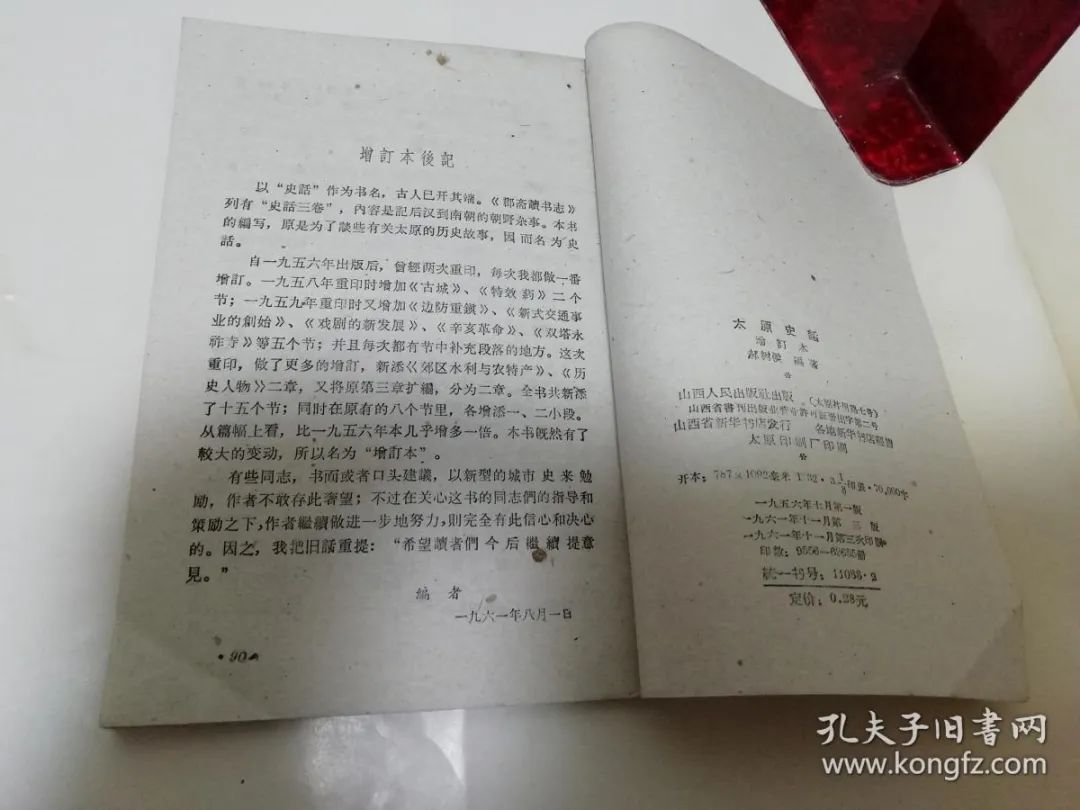 增訂本後記
以“史話”作为书名，古人已开其端。《郡斋讀书志》
列有“史話三卷”，內容是記后汉到南朝的朝野杂事。本书
的編写，原是为了談些有关太原的历史故事，因而名为史
話。
自一九五六年出版后，曾經两次重印，每次我都做一番
增訂。一九五八年重印时增加《古城》、《特效葯》二个
节；一九五九年重印时又增加《边防重鎭》、《新式交通事
业的創始》、《戏剧的新发展》、《辛亥革命》、《双塔永
祚寺》等五个节；并且每次都有节中补充段落的地方。这次
重印，做了更多的增訂，新添《郊区水利与农特产》、《历
史人物》二章，又将原第三章扩編，分为二章。全书共新添
了十五个节；同时在原有的八个节里，各增添一、二小段。
从篇幅上看，比一九五六年本几乎增多一倍。本书既然有了
較大的变动，所以名为“增訂本”。
有些同志，书面或者口头建議，以新型的城市史来勉
励，作者不敢存此奢望；不过在关心这书的同志們的指导和
策励之下，作者繼續做进一步地努力，則完全有此信心和决心
的。因之，我把旧話重提：“希望讀者們今后繼續提意
見。”
編者
一九六一年八月一日
·90·
太原史話
增訂本
郝树侯 編著
山西人民出版社出版 （太原幷州路七号）
山西省書刊出版业营业許可証晋出字第二号
山西省新华书店发行 各地新华书店經售
太原印刷厂印刷
开本：787×1092毫米 1/32·3 1/8印張·70,000字
一九五六年十月第一版
一九六一年十一月第三版
一九六一年十一月第三次印刷
統一书号：11088·2
定价：0.28元
孔夫子旧书网
www.kongfz.com